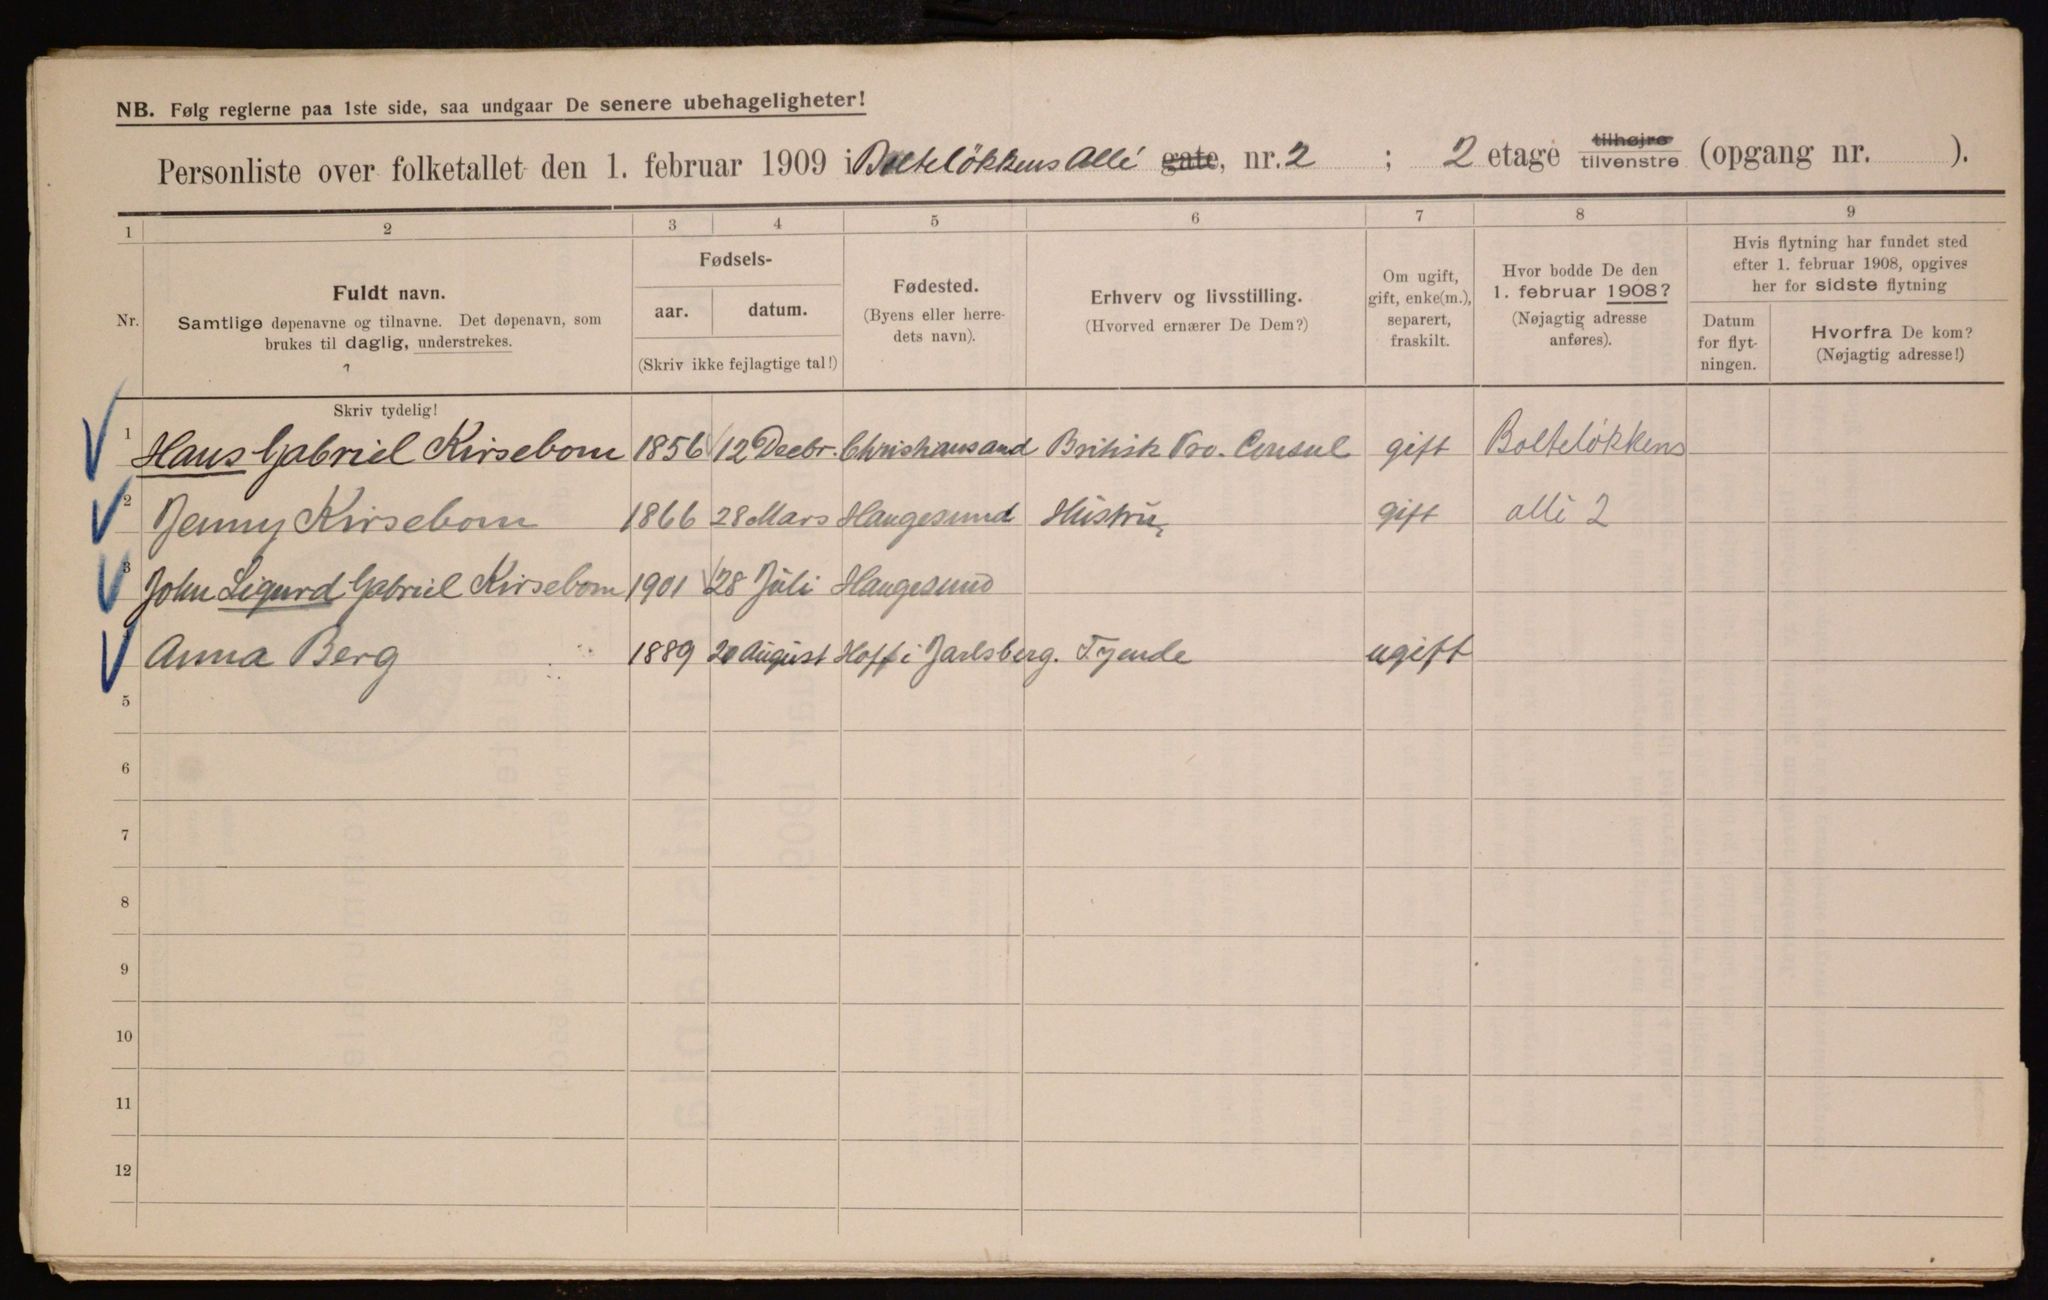 NB. Følg reglerne paa 1ste side, saa undgaar De senere ubehageligheter!
Personliste over folketallet den 1. februar 1909 i Bolteløkkens Allé gate, nr. 2 ; 2 etage tilhøjre tilvenstre (opgang nr. ).
1 2 3 4 5 6 7 8 9
Nr.
Fuldt navn.
Samtlige døpenavne og tilnavne. Det døpenavn, som
brukes til daglig, understrekes.
Skriv tydelig!
Fødsels-
aar. datum.
(Skriv ikke fejlagtige tal!)
Fødested.
(Byens eller herre-
dets navn).
Erhverv og livsstilling.
(Hvorved ernærer De Dem?)
Om ugift,
gift, enke(m.),
separert,
fraskilt.
Hvor bodde De den
1. februar 1908?
(Nøjagtig adresse
anføres).
Hvis flytning har fundet sted
efter 1. februar 1908, opgives
her for sidste flytning
Datum
for flyt-
ningen.
Hvorfra De kom?
(Nøjagtig adresse!)
1 Hans Gabriel Kirsebom 1856 12 Decbr. Christiansand British Pro. Consul gift Bolteløkkens
2 Jenny Kirsebom 1866 28 Mars Haugesund Hüstrü gift alli 2
3 John Sigurd Gabriel Kirsebom 1901 28 Jüli Haugesund
Anna Berg 1889 20 August Hoff i Jarlsberg. Tyende ugift
5
6
7
8
9
10
11
12